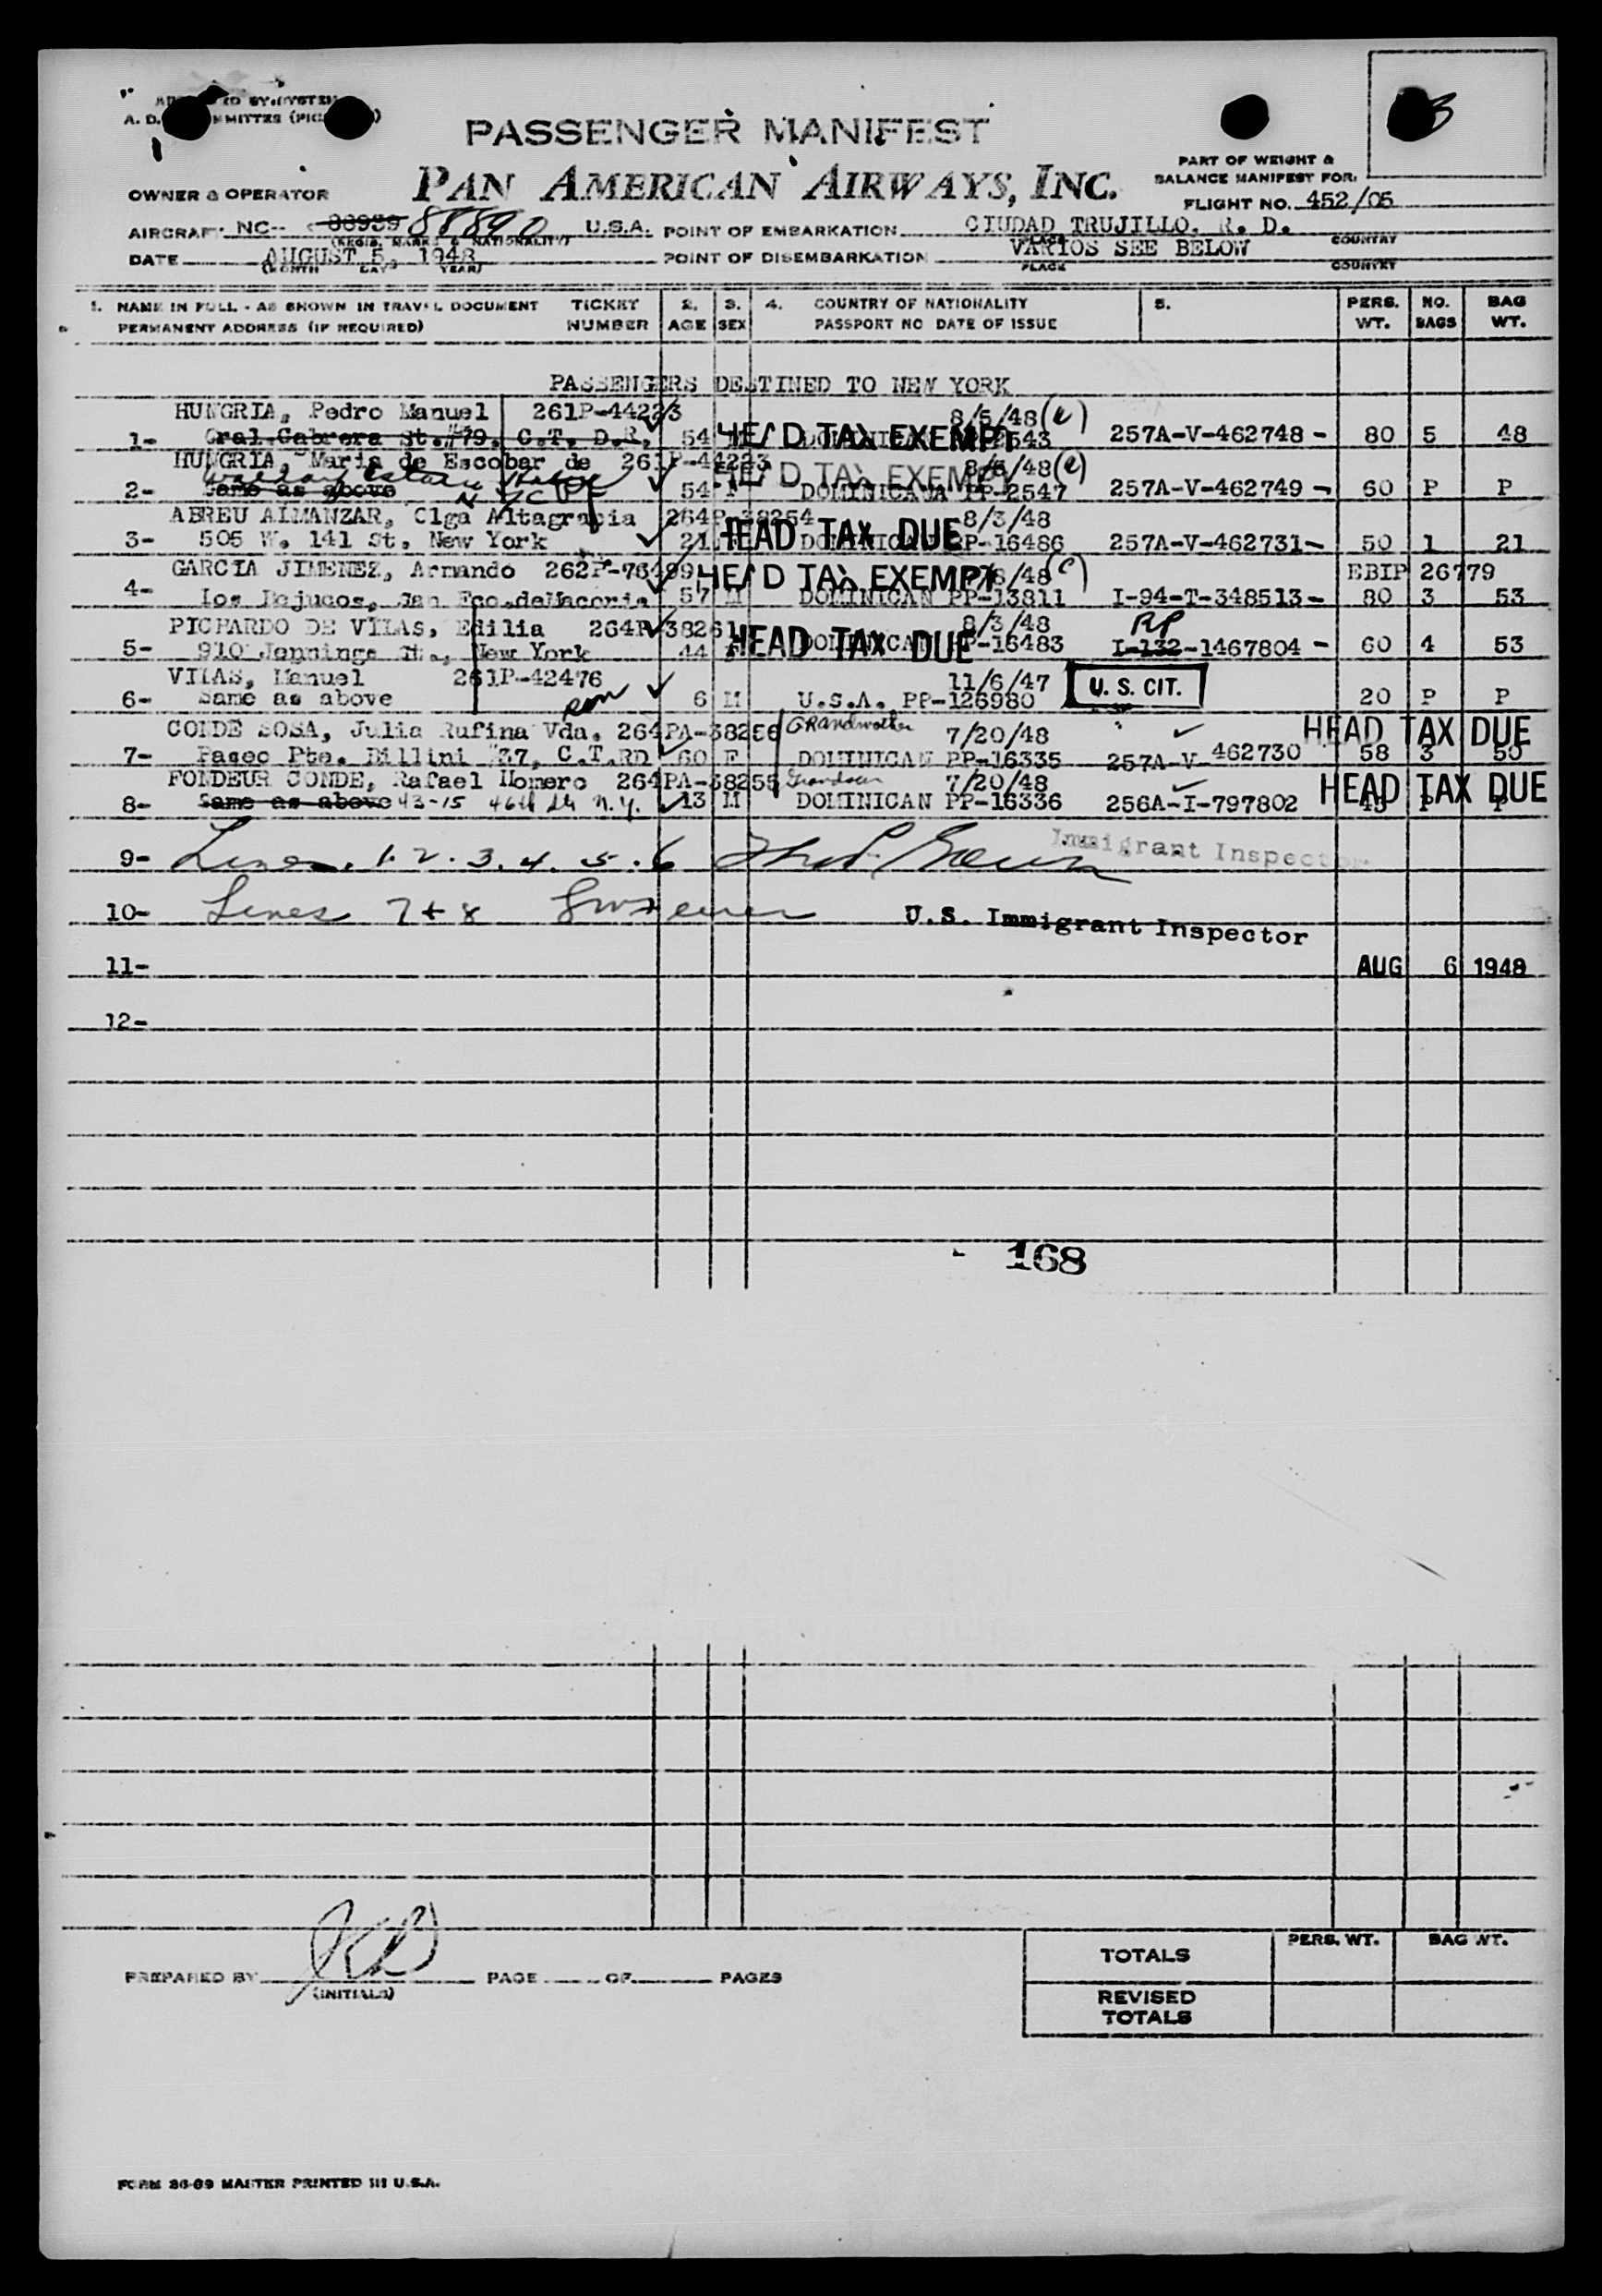 A. D.
3
PASSENGER MANIFEST
PAN AMERICAN AIRWAYS, INC.
PART OF WEIGHT &
BALANCE MANIFEST FOR:
OWNER & OPERATOR
FLIGHT NO. 452/05
AIRCRAFT NC-- 88939 88890 U.S.A. POINT OF EMBARKATION CIUDAD TRUJILLO, R. D.
(REGIS. MARKS & NATIONALITY) PLACE COUNTRY
DATE AUGUST 5, 1948 POINT OF DISEMBARKATION VARIOS SEE BELOW
(MONTH DAY YEAR) PLACE COUNTRY
1. NAME IN FULL - AS SHOWN IN TRAVEL DOCUMENT TICKET 2. 3. 4. COUNTRY OF NATIONALITY 5. PERS. NO. BAG
PERMANENT ADDRESS (IF REQUIRED) NUMBER AGE SEX PASSPORT NO DATE OF ISSUE WT. BAGS WT.
PASSENGERS DESTINED TO NEW YORK
HUNGRIA, Pedro Manuel 261P-44223 8/5/48(e)
1- Gral.Cabrera St.#79, C.T. D.R, 54 HEAD TAX EXEMPT 257A-V-462748 - 80 5 48
HUNGRIA, Maria de Escobar de 261P-44223 HEAD TAX EXEMPT 8/5/48(e)
Waldorf Astoria Hotel
2- Same as above N Y C 54 F DOMINICANA PP-2547 257A-V-462749 - 60 P P
ABREU ALMANZAR, Olga Altagracia 264P-38254 8/3/48
3- 505 W. 141 St, New York 21 HEAD TAX DUE DOMINICAN PP-16486 257A-V-462731- 50 1 21
GARCIA JIMENEZ, Armando 262P-76499 HEAD TAX EXEMPT /48(e) EBIP 26779
4- Los Bejucos, San Fco.deMacoris 57 M DOMINICAN PP-13811 I-94-T-348513- 80 3 53
PICHARDO DE VILAS, Edilia 264P-38261 8/3/48 RP
5- 910 Jennings St., New York 44 HEAD TAX DUE DOMINICAN PP-16483 I-132-1467804 - 60 4 53
VILAS, Manuel 261P-42476 11/6/47 U. S. CIT.
6- Same as above son 6 M U.S.A. PP-126980 20 P P
CONDE SOSA, Julia Rufina Vda. 264PA-38256 Grandmother 7/20/48 HEAD TAX DUE
7- Paseo Pte. Billini #37, C.T.RD 60 F DOMINICAN PP-16335 257A-V-462730 58 3 50
FONDEUR CONDE, Rafael Homero 264PA-38255 Grandson 7/20/48 HEAD TAX DUE
8- Same as above 43-15 46th St N.Y. 13 M DOMINICAN PP-16336 256A-I-797802 45 P P
9- Lines. 1. 2. 3. 4. 5. 6 Immigrant Inspector
10- Lines 7 + 8 U.S. Immigrant Inspector
11- AUG 6 1948
12-
168
PREPARED BY PAGE OF PAGES
(INITIALS)
PERS. WT. BAG WT.
TOTALS
REVISED
TOTALS
FORM 86-89 MASTER PRINTED IN U.S.A.